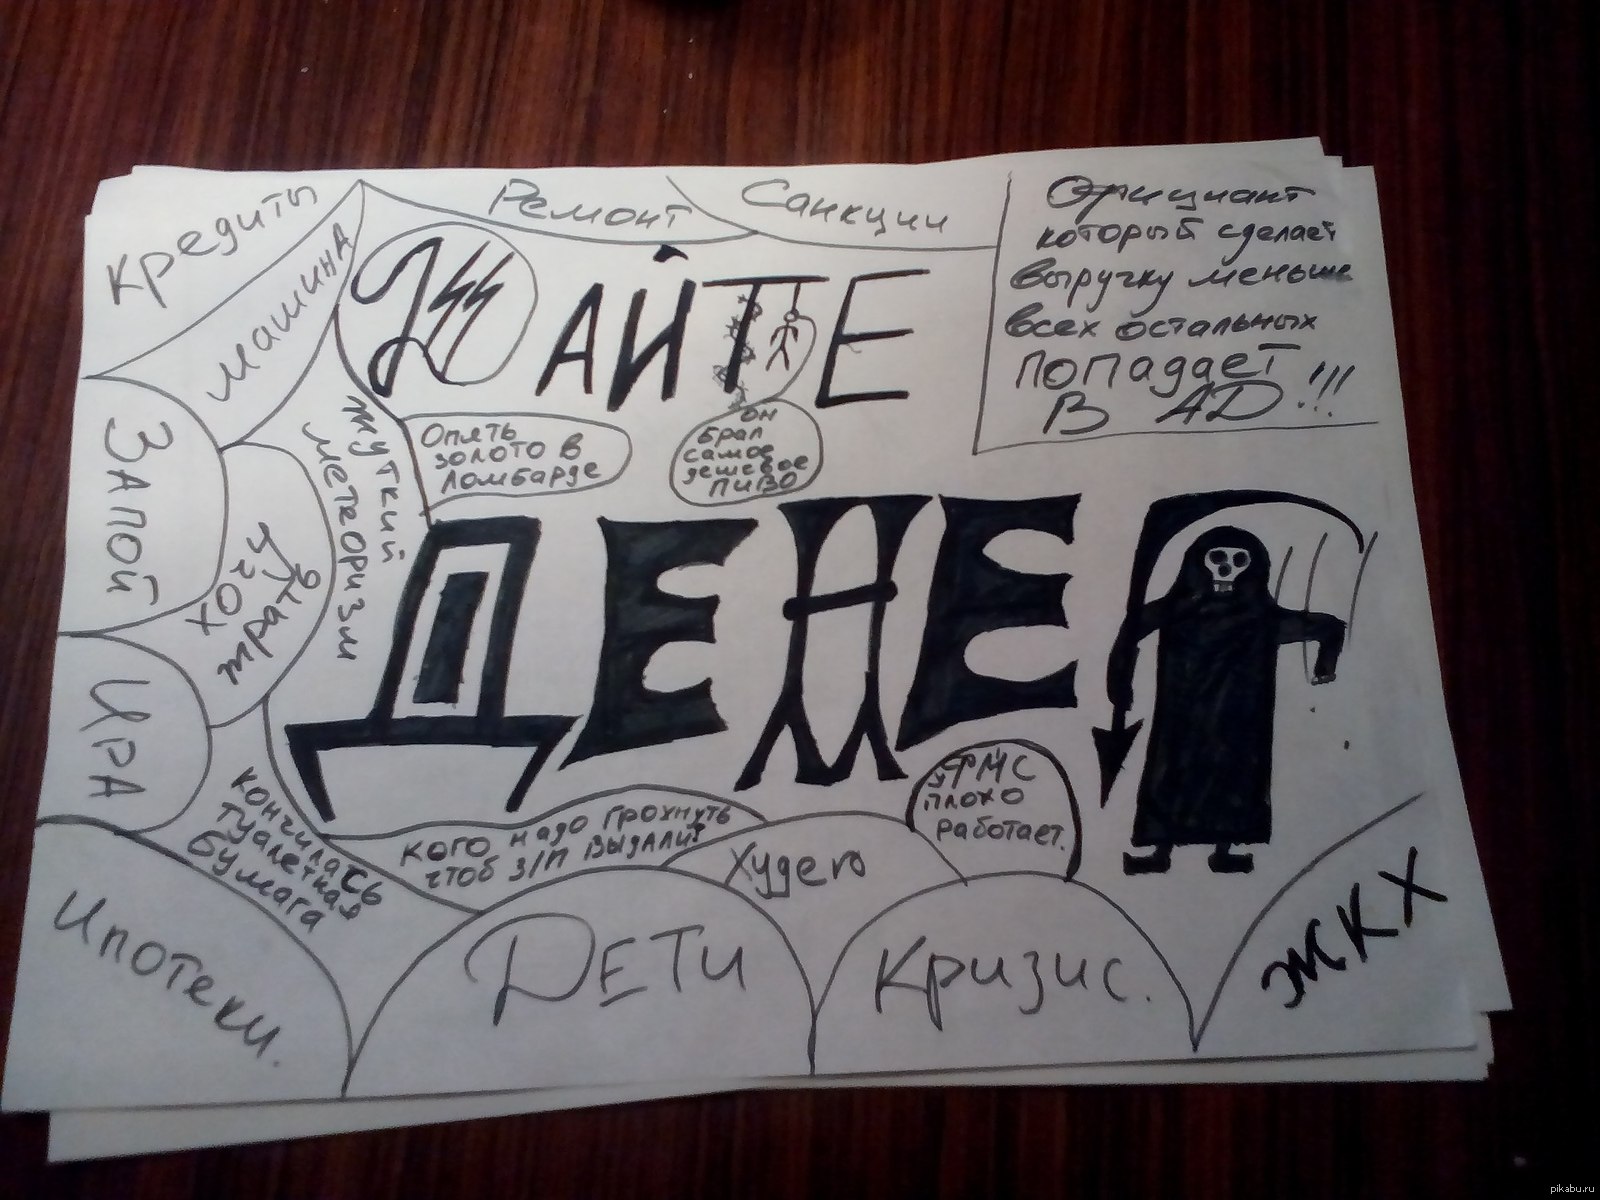 Кредиты
машина
Ремонт
Санкции
Официант
который сделает
выручку меньше
всех остальных
ПОПАДАЕТ
В АД!!!
ДАЙТЕ
Опять
золото в
ломбарде
он
брал
самое
дешевое
пиво
ДЕНЕГ
ЗАПОЙ
жуткий
метеоризм
ХОЧУ
жрать
ИРА
кончилась
туалетная
бумага
кого надо грохнуть
чтоб З/П выдали?
Худею
ФМС
плохо
работает.
Ипотеки.
Дети
Кризис.
ЖКХ
pikabu.ru